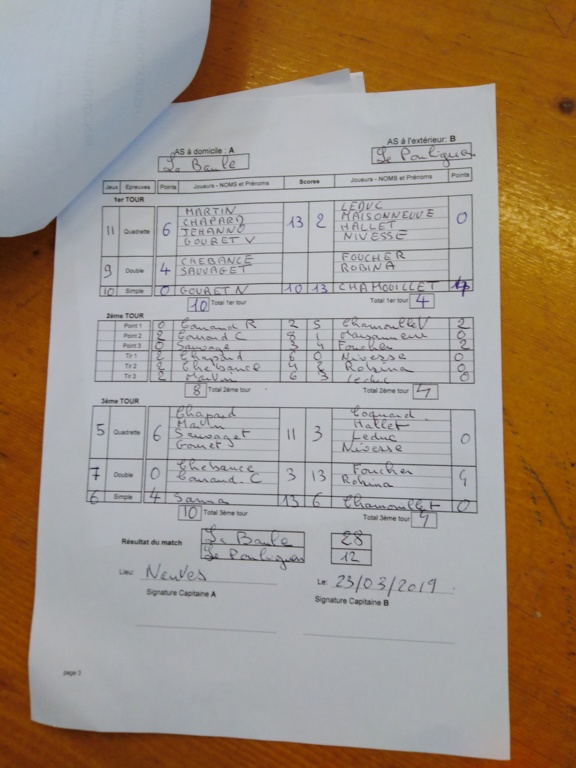 AS à domicile : A AS à l'extérieur: B
La Baule Le Pouliguen
Jeux Epreuves Points Joueurs - NOMS et Prénoms Scores Joueurs - NOMS et Prénoms Points
1er TOUR
11 Quadrette 6 MARTIN 13 2 LEDUC 0
CHAPARD MAISONNEUVE
JEHANNO HALLET
GOURET V NIVESSE
9 Double 4 CHEBANCE FOUCHER
SAUVAGET ROBINA
10 Simple 0 GOURET N 10 13 CHAMOUILLET 4
10 Total 1er tour Total 1er tour 4
2ème TOUR
Point 1 0 R 2 5 2
Point 2 2 C 8 1 0
Point 3 0 Sauvage 3 4 Foucher 2
Tir 1 2 Chapard 6 0 Nivesse 0
Tir 2 2 Chebance 4 2 Robina 0
Tir 3 2 Martin 6 3 Leduc 0
8 Total 2ème tour Total 2ème tour 4
3ème TOUR
5 Quadrette 6 Chapard 11 3 0
Martin Hallet
Sauvaget Leduc
Gouret Nivesse
7 Double 0 Chebance 3 13 Foucher 4
C Robina
6 Simple 4 13 6 Chamouillet 0
10 Total 3ème tour Total 3ème tour 4
Résultat du match La Baule 28
Le Pouliguen 12
Lieu: Le: 23/03/2019
Signature Capitaine A Signature Capitaine B
page 3